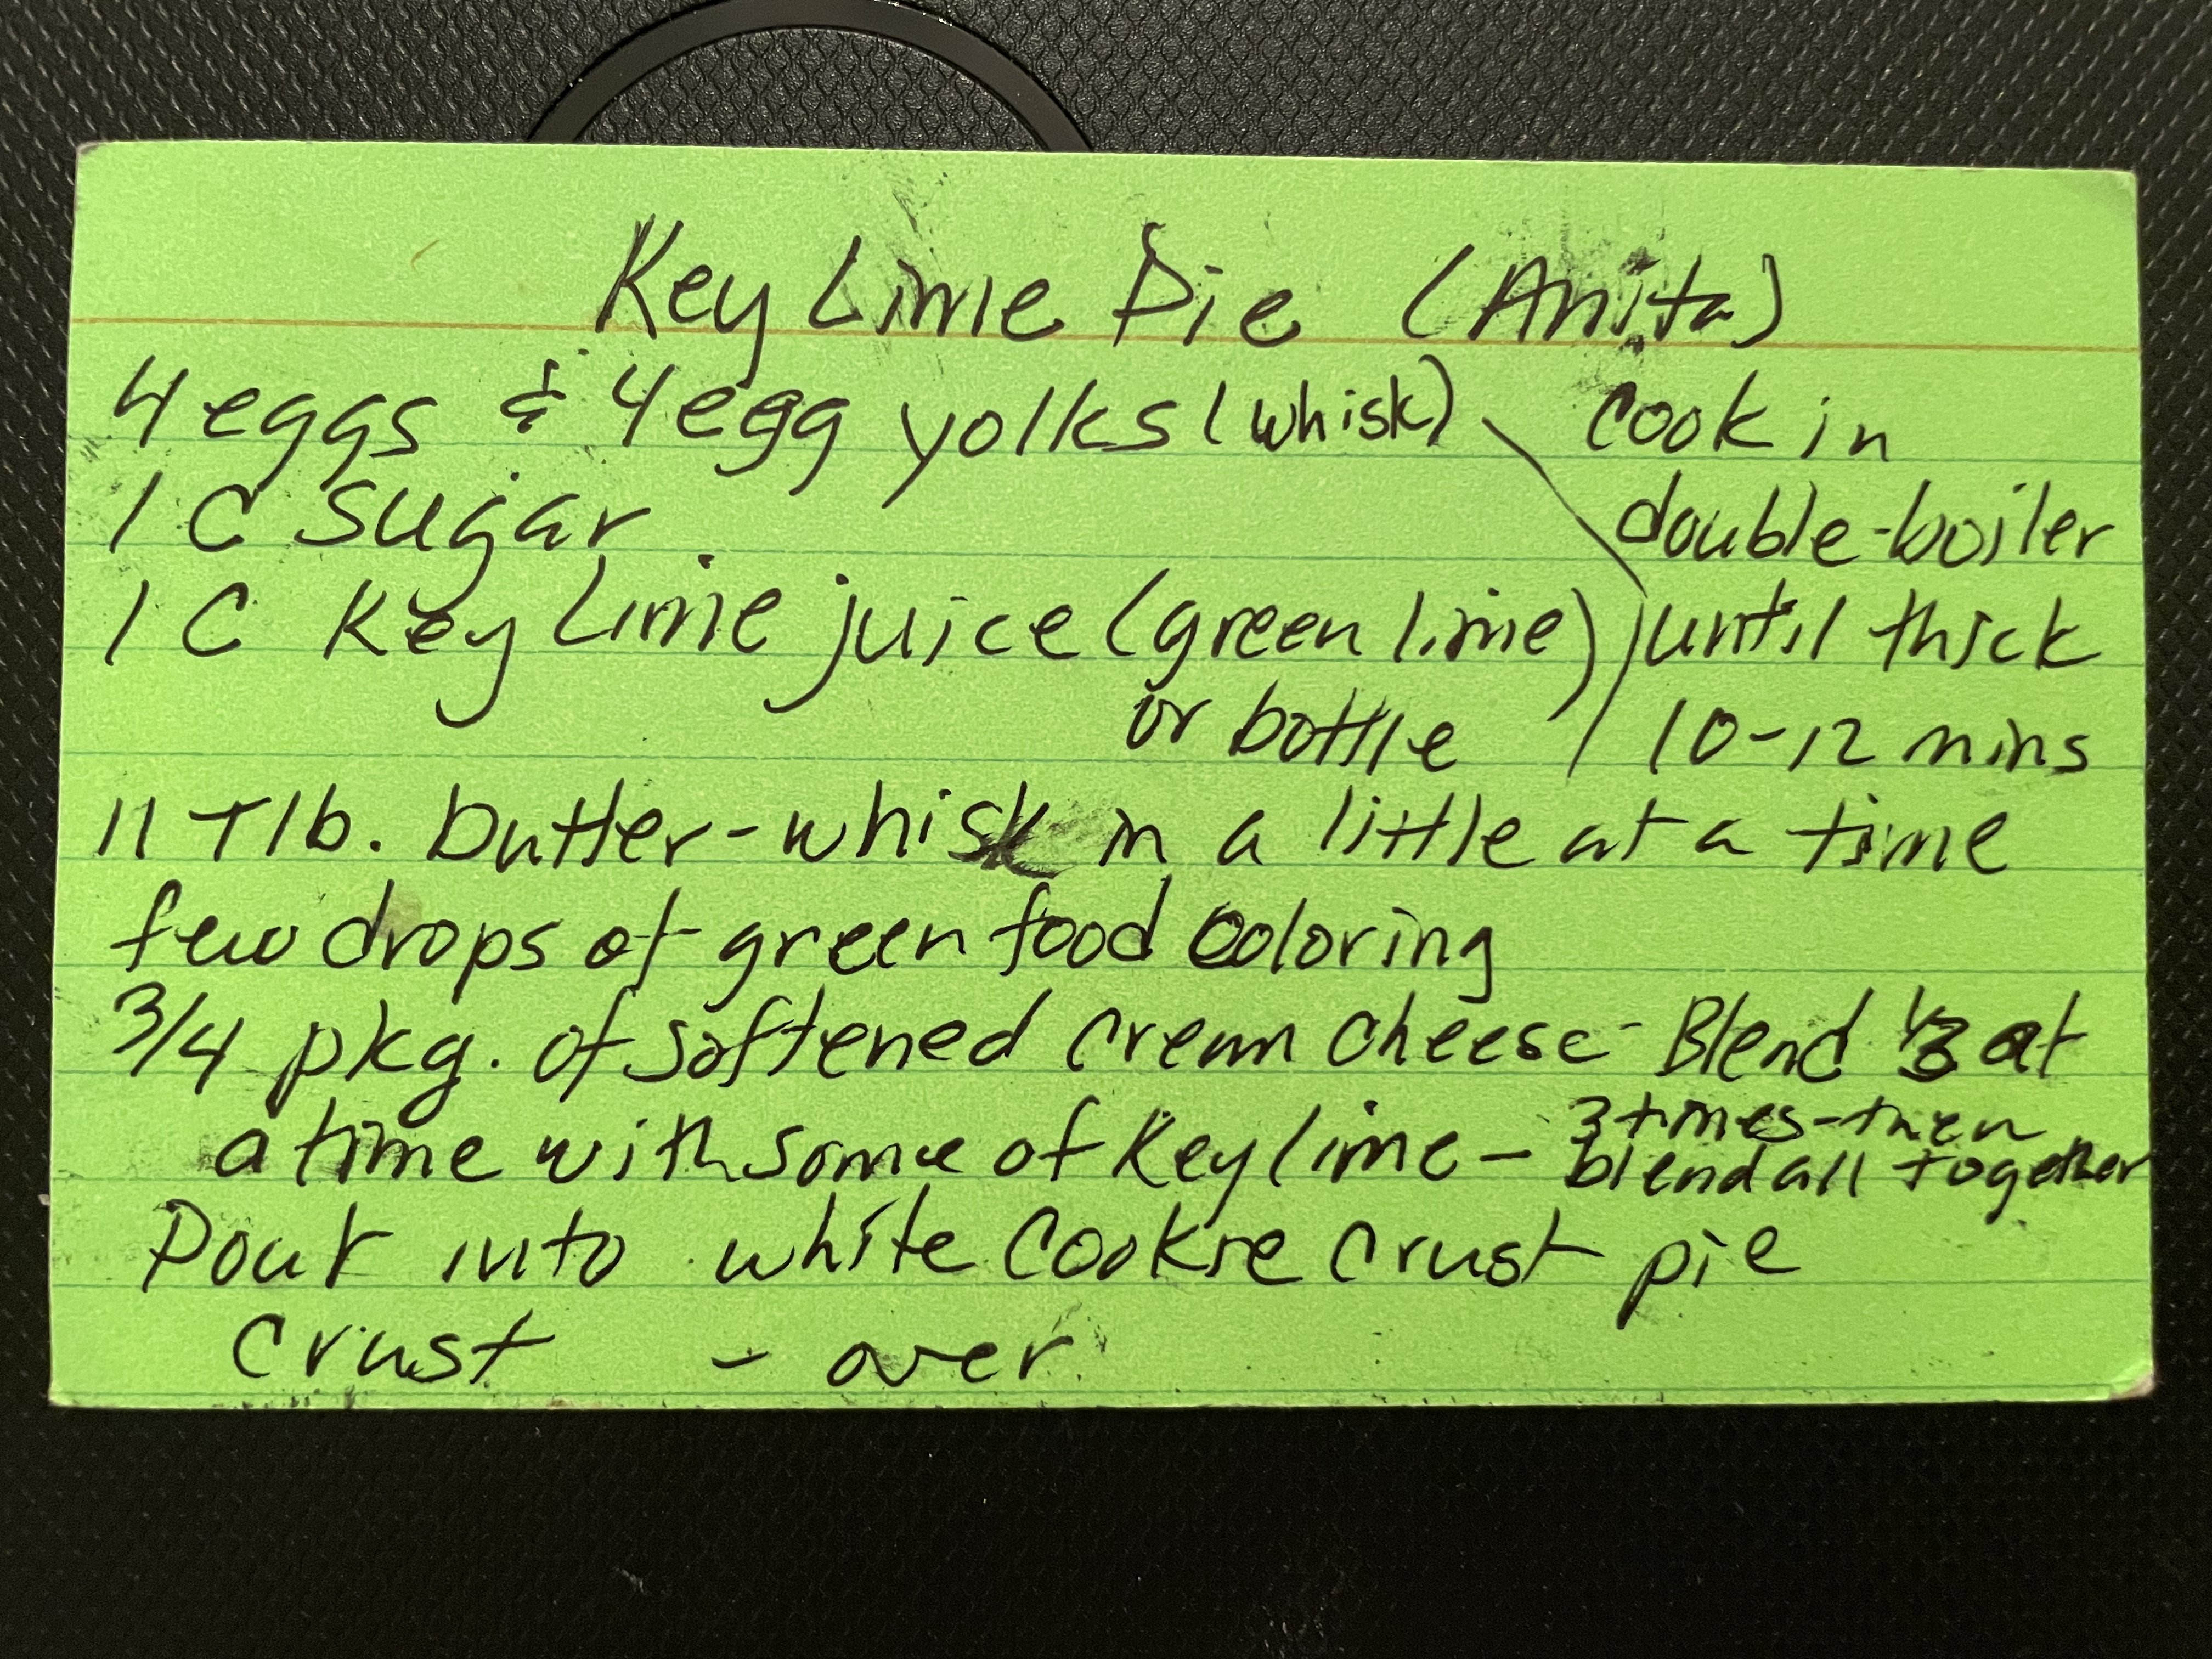 Key Lime Pie (Anita)
4 eggs & 4 egg yolks (whisk) cook in
1 C sugar double-boiler
1 C Key Lime juice (green lime) until thick
or bottle 10-12 mins
11 Tlb. butter - whisk in a little at a time
few drops of green food coloring
3/4 pkg. of softened cream cheese - Blend 1/3 at
a time with some of Key lime - 3 times - then
blend all together
Pour into white cookie crust pie
crust - over